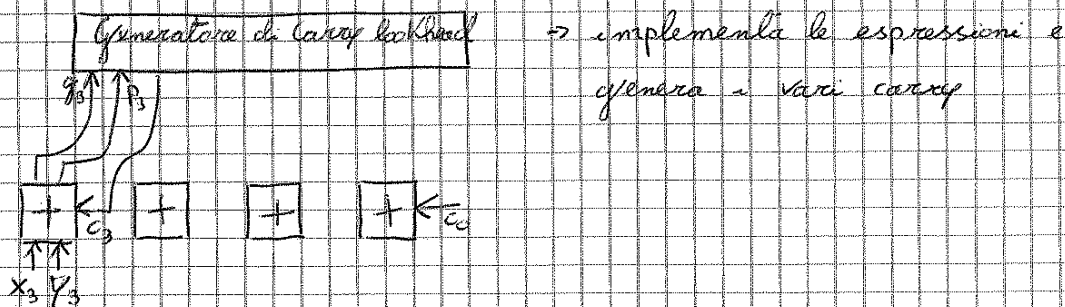 Generatore di Carry lookhead → implementa le espressioni e
genera i vari carry
g3 p3
+ c3 + + + c0
x3 y3